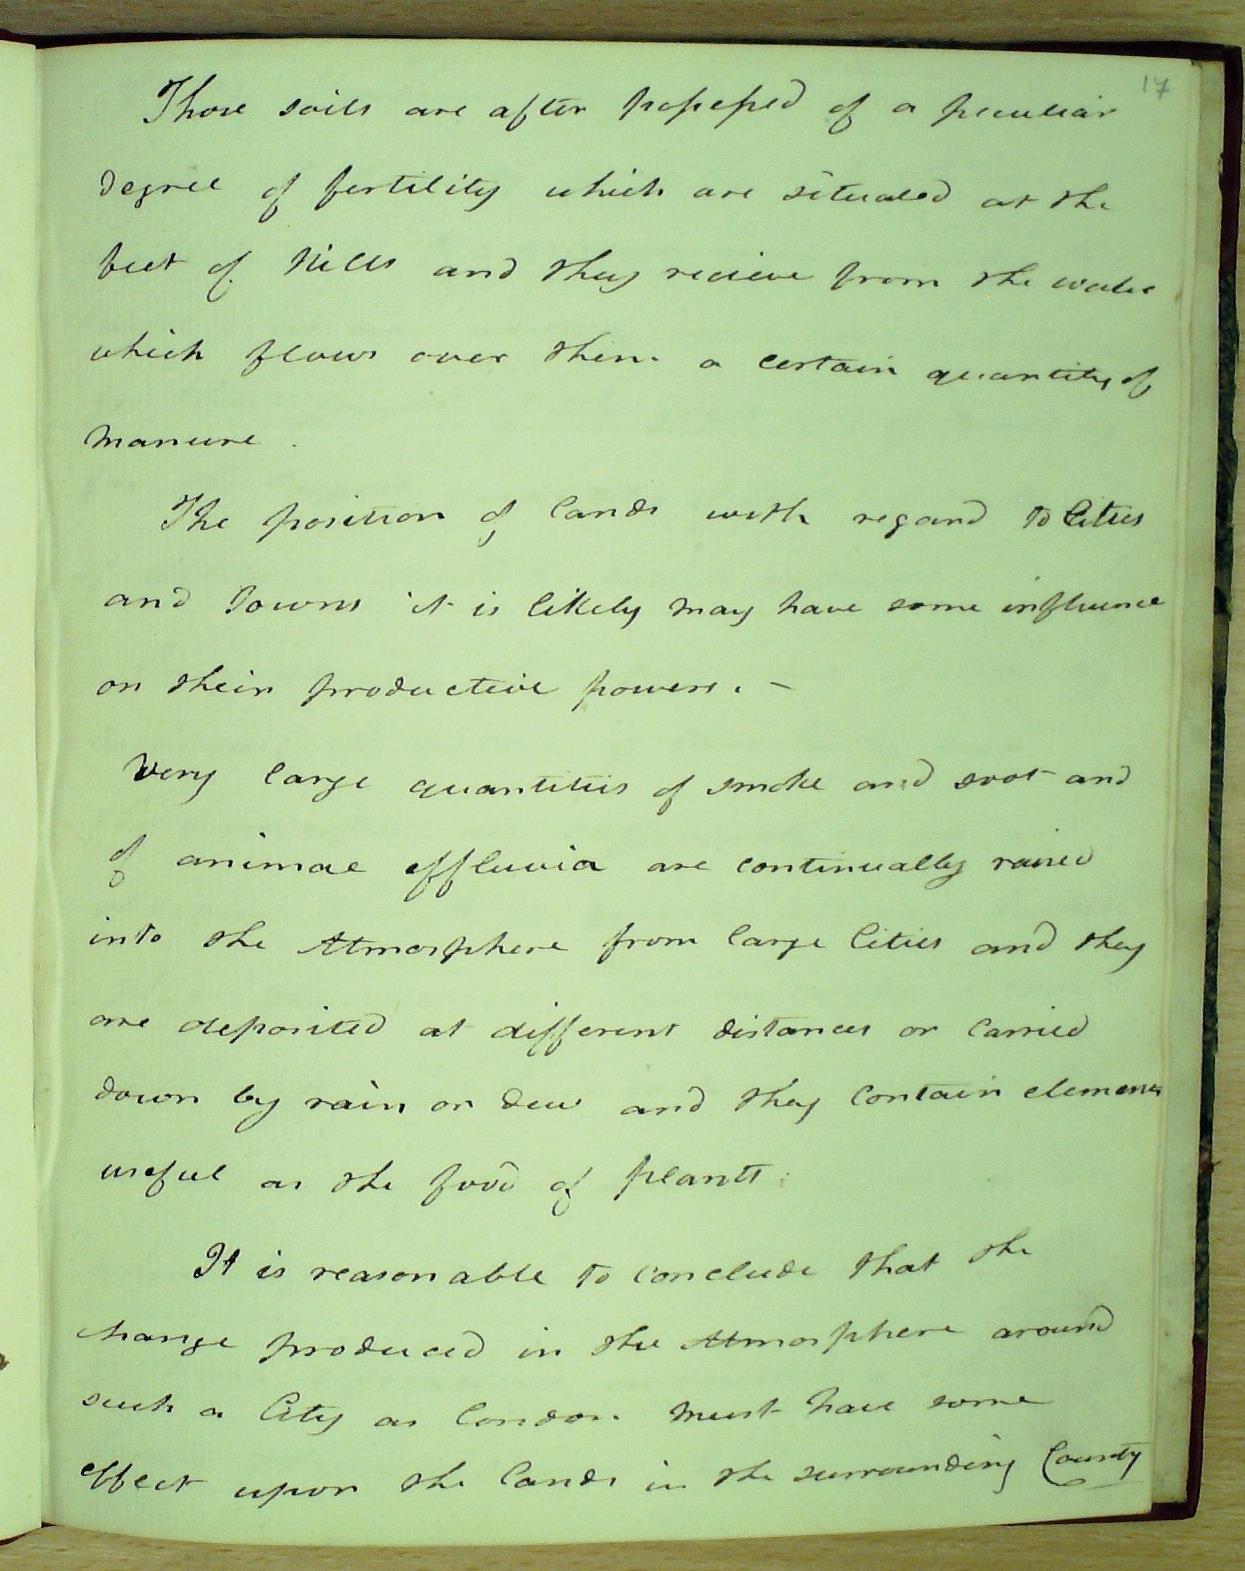 17
Those soils are often possessed of a peculiar
degree of fertility which are situated at the
feet of Hills and they recieve from the water
which flows over them a certain quantity of
manure.
The position of lands with regard to Cities
and Towns it is likely may have some influence
on their productive powers. –
Very large quantities of smoke and soot and
of animal effluvia are continually raised
into the Atmosphere from large Cities and they
are deposited at different distances or carried
down by rain or dew and they contain elements
useful as the food of plants.
It is reasonable to conclude that the
change produced in the Atmosphere around
such a City as London must have some
effect upon the lands in the surrounding County